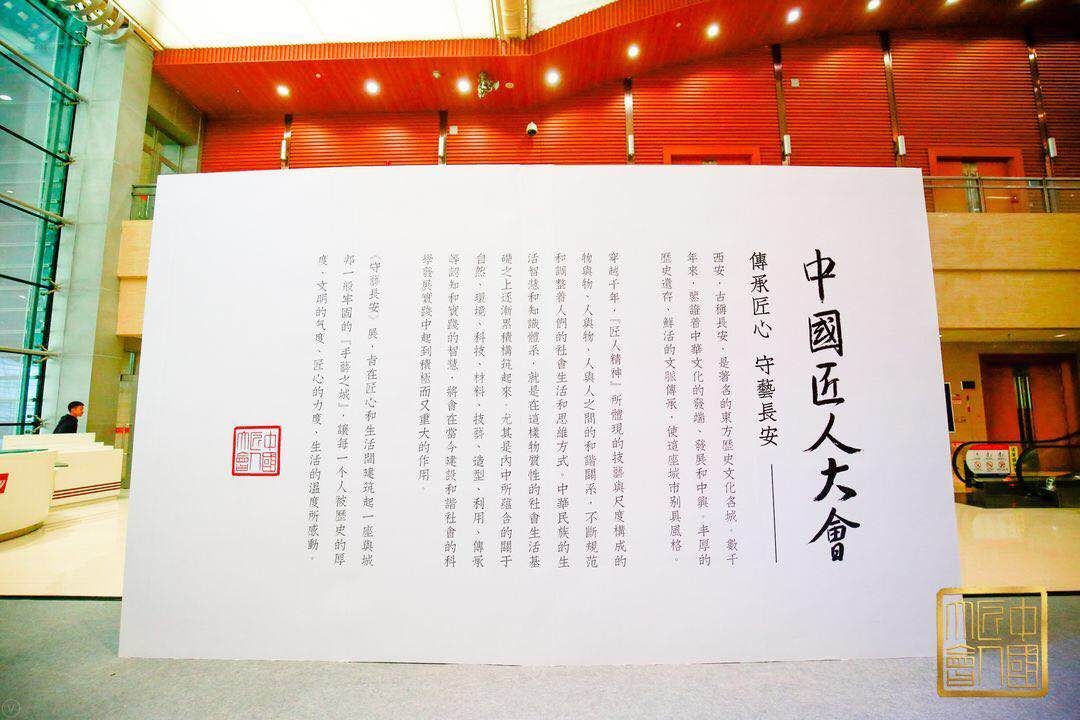 中國匠人大會
傳承匠心 守藝長安
西安,古稱長安,是著名的東方歷史文化名城。數千
年來,鑒證着中華文化的發端、發展和中興。丰厚的
歷史遺存、鮮活的文脈傳承,使這座城市别具風格。
穿越千年,『匠人精神』所體現的技藝與尺度構成的
物與物、人與物、人與人之間的和諧關系,不斷規范
和調整着人們的社會生活和思維方式。中華民族的生
活智慧和知識體系,就是在這樣物質性的社會生活基
礎之上逐漸累積構筑起來,尤其是內中所蕴含的關于
自然、環境、科技、材料、技藝、造型、利用、傳承
等認知和實踐的智慧,將會在當今建設和諧社會的科
學發展實踐中起到積極而又重大的作用。
《守藝長安》展,旨在匠心和生活間建筑起一座與城
邦一般牢固的『手藝之城』,讓每一个人被歷史的厚
度、文明的气度、匠心的力度、生活的溫度所感動。
中國
匠人
大會
中國
匠人
大會